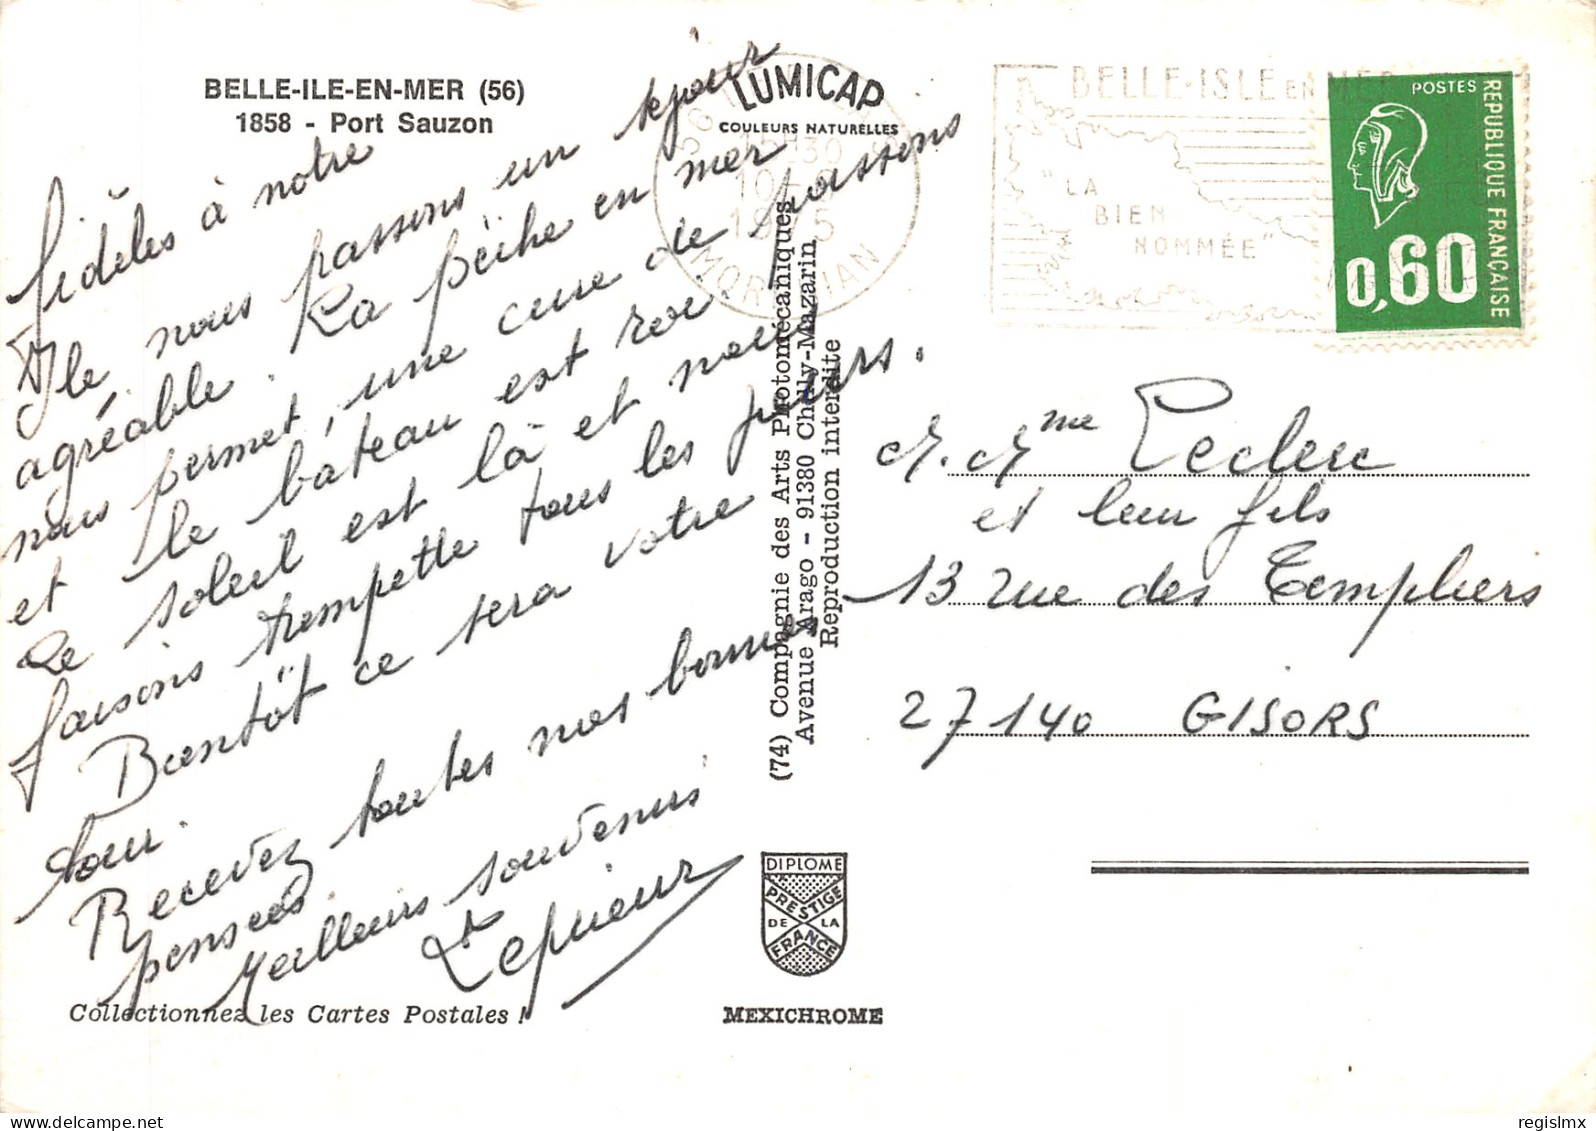 BELLE-ILE-EN-MER (56)
1858 - Port Sauzon
LUMICAP
COULEURS NATURELLES
fidèles à notre
Ile nous passons un séjour
agréable. La pêche en mer
nous permet, une cure de passons
et le bateau est roi
Le soleil est là et nous
faisons trempette tous les jours.
Bientôt ce sera votre
tour.
Recevez toutes nos bonnes
pensées.
Meilleurs souvenirs
Leprieur
Collectionnez les Cartes Postales !
(74) Compagnie des Arts Photomécaniques
Avenue Arago - 91380 Chilly-Mazarin
Reproduction interdite
DIPLOME
PRESTIGE
DE LA
FRANCE
MEXICHROME
15H30
MORBIHAN
BELLE-ISLE EN MER
"LA
BIEN
NOMMÉE"
POSTES
REPUBLIQUE FRANÇAISE
0,60
M. Mme Leclerc
et leur fils
13 rue des Templiers
27140 GISORS
regislmx